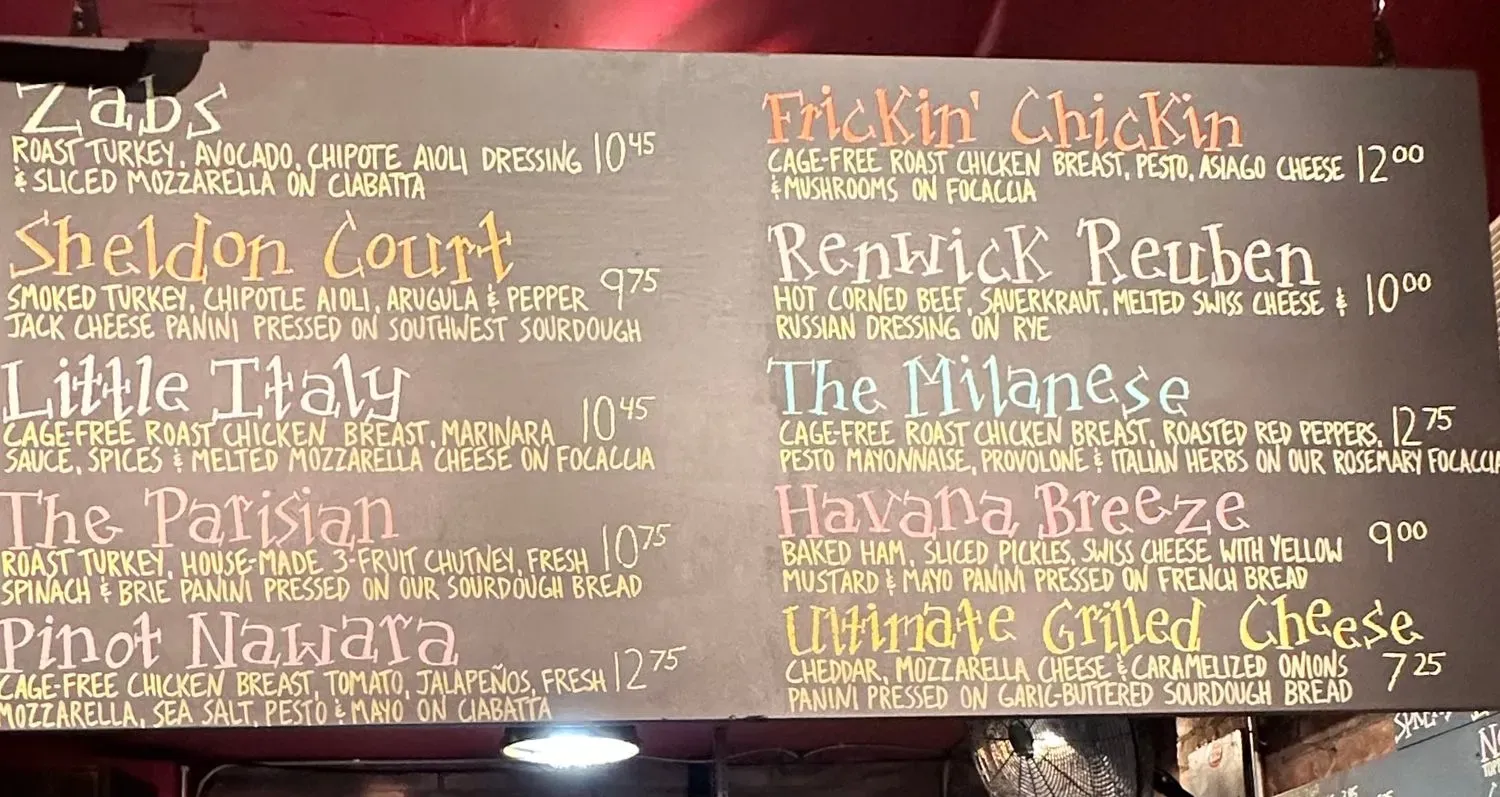 Zabs
ROAST TURKEY, AVOCADO, CHIPOTE AIOLI DRESSING 10 45
& SLICED MOZZARELLA ON CIABATTA
Sheldon Court
SMOKED TURKEY, CHIPOTLE AIOLI, ARUGULA & PEPPER 9 75
JACK CHEESE PANINI PRESSED ON SOUTHWEST SOURDOUGH
Little Italy
CAGE-FREE ROAST CHICKEN BREAST, MARINARA 10 45
SAUCE, SPICES & MELTED MOZZARELLA CHEESE ON FOCACCIA
The Parisian
ROAST TURKEY, HOUSE-MADE 3-FRUIT CHUTNEY, FRESH 10 75
SPINACH & BRIE PANINI PRESSED ON OUR SOURDOUGH BREAD
Pinot Nawara
CAGE-FREE CHICKEN BREAST, TOMATO, JALAPEÑOS, FRESH 12 75
MOZZARELLA, SEA SALT, PESTO & MAYO ON CIABATTA
Frickin' Chickin
CAGE-FREE ROAST CHICKEN BREAST, PESTO, ASIAGO CHEESE 12 00
& MUSHROOMS ON FOCACCIA
Renwick Reuben
HOT CORNED BEEF, SAUERKRAUT, MELTED SWISS CHEESE & 10 00
RUSSIAN DRESSING ON RYE
The Milanese
CAGE-FREE ROAST CHICKEN BREAST, ROASTED RED PEPPERS, 12 75
PESTO MAYONNAISE, PROVOLONE & ITALIAN HERBS ON OUR ROSEMARY FOCACCIA
Havana Breeze
BAKED HAM, SLICED PICKLES, SWISS CHEESE WITH YELLOW 9 00
MUSTARD & MAYO PANINI PRESSED ON FRENCH BREAD
Ultimate Grilled Cheese
CHEDDAR, MOZZARELLA CHEESE & CARAMELIZED ONIONS 7 25
PANINI PRESSED ON GARIC-BUTTERED SOURDOUGH BREAD